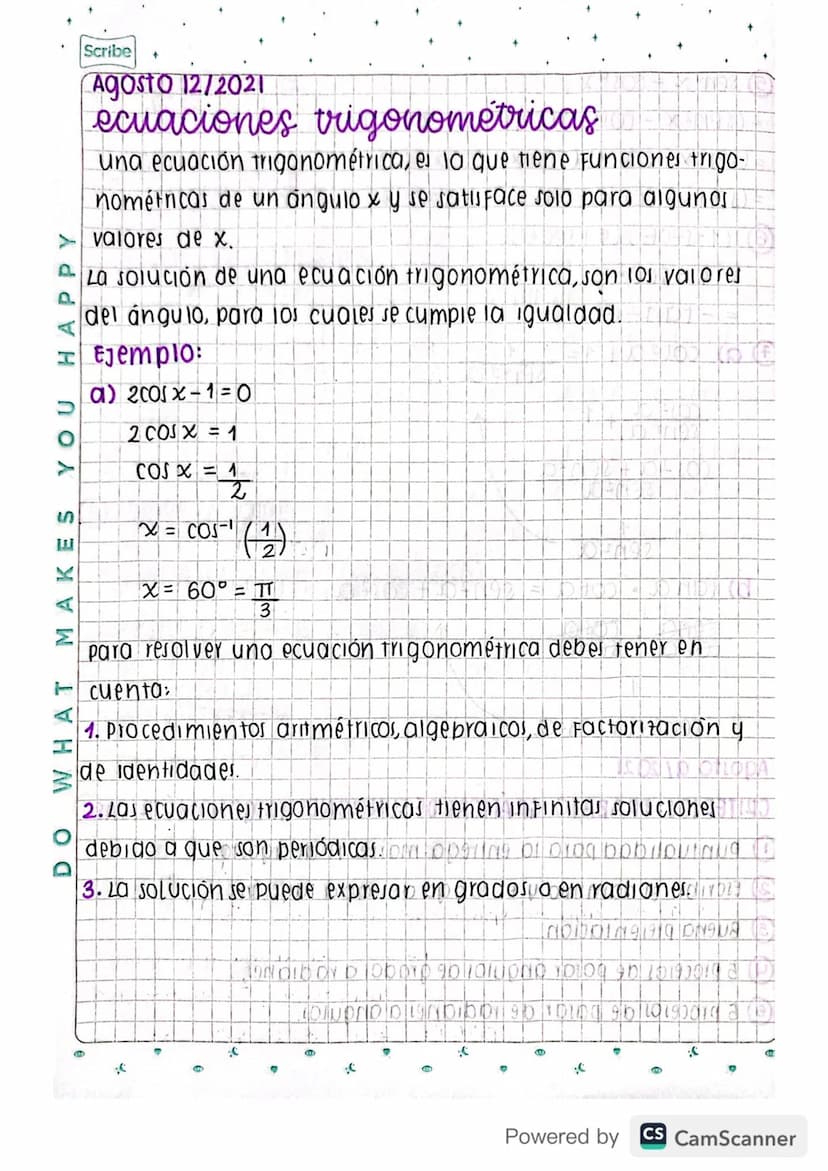 Scribe
Agosto 12/2021
ecuaciones trigonométricas
una ecuación trigonométrica, es la que tiene funciones trigo-
nométricas de un ángulo x y se satisface solo para algunos
valores de x.
La solución de una ecuación trigonométrica, son los valores
del ángulo, para los cuales se cumple la igualdad.
Ejemplo:
a) 2cos x - 1 = 0
2 cos x = 1
cos x = 1/2
x = cos⁻¹ (1/2)
x = 60° = π/3
para resolver una ecuación trigonométrica debes tener en
cuenta:
1. Procedimientos aritmétricos, algebraicos, de factorización y
de identidades.
2. Las ecuaciones trigonométricas tienen infinitas soluciones
debido a que son periódicas.
3. La solución se puede expresar en grados o en radianes.
DO WHAT MAKES YOU HAPPY
Powered by CS CamScanner